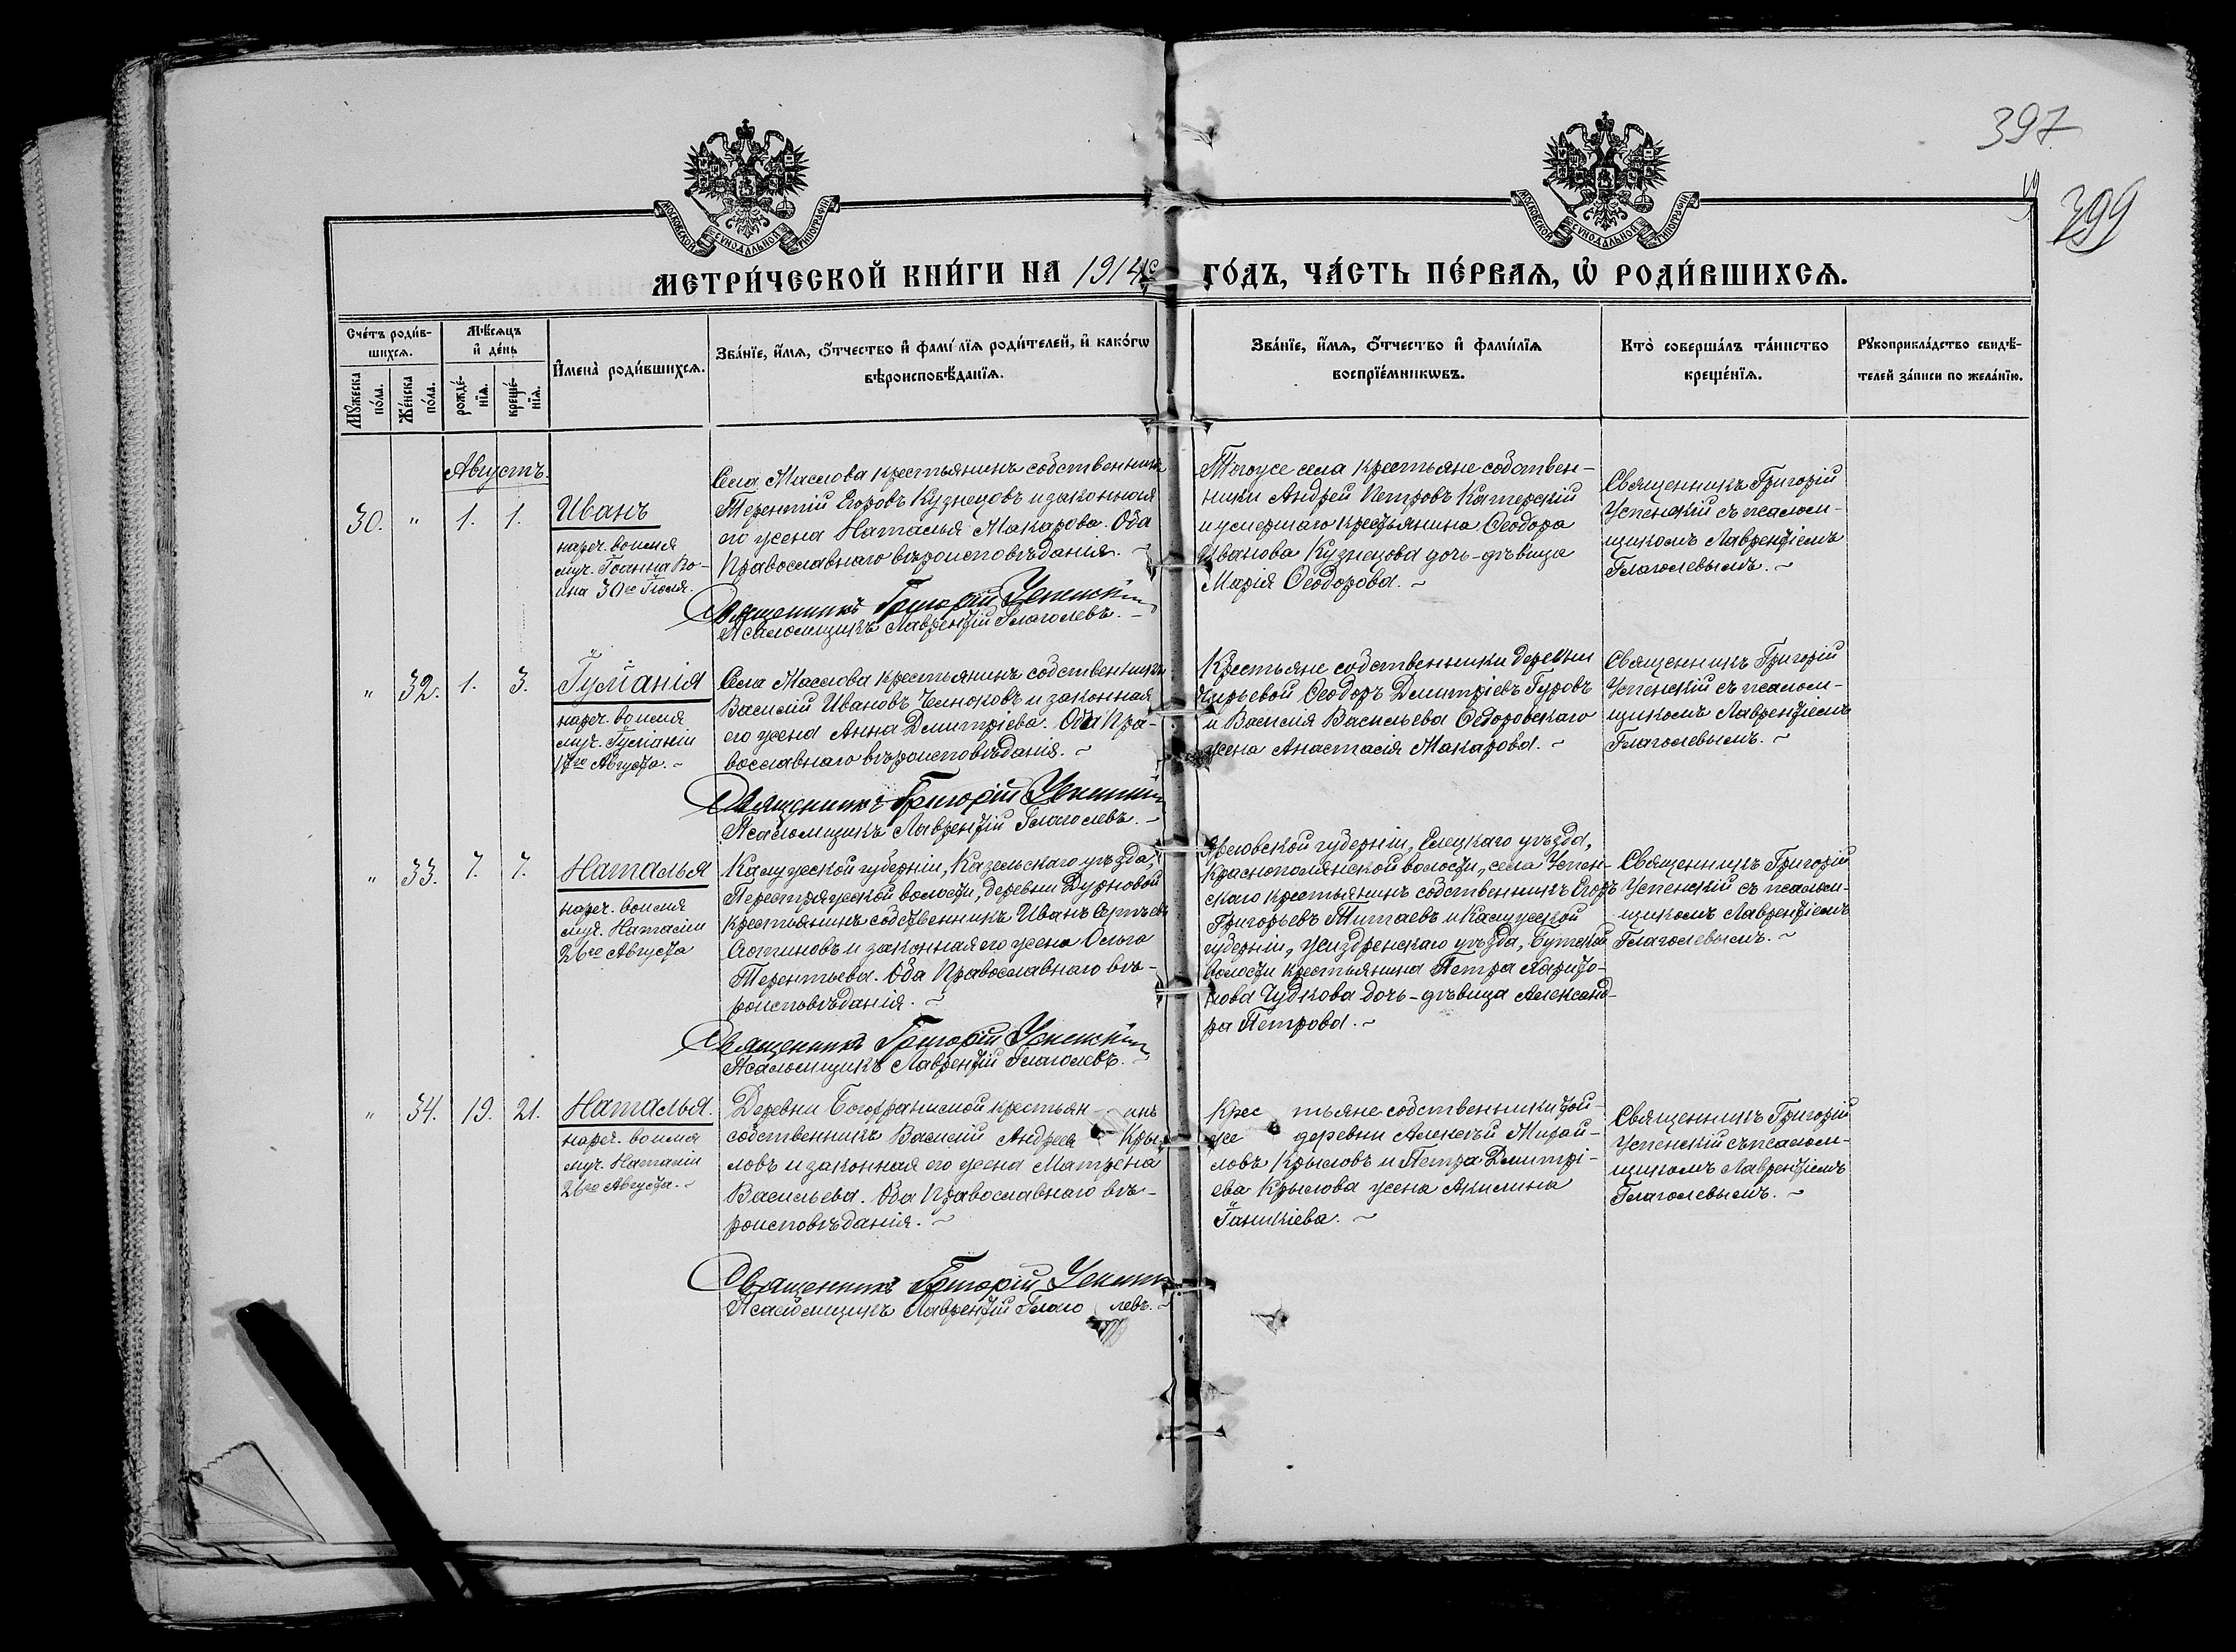 397
399
МОСКОВСКОЙ СѴНОДАЛЬНОЙ ТИПОГРАФІИ
МОСКОВСКОЙ СѴНОДАЛЬНОЙ ТИПОГРАФІИ
МЕТРИ́ЧЕСКОЙ КНИ́ГИ НА 1914 ГО́ДЪ, ЧА́СТЬ ПЕ́РВАѦ, Ѡ҆ РОДИ́ВШИХСѦ.
Сче́тъ роди́в-
шихсѧ.
Мꙋ́жеска по́ла.
Же́нска по́ла.
Мѣ́сѧцъ и҆ де́нь
рожде́-нїѧ.
креще́-нїѧ.
И҆мена̀ роди́вшихсѧ.
Зва́нїе, и҆́мѧ, ѻ҆́тчество и҆ фамі́лїѧ роди́телей, и҆ како́гѡ
вѣроисповѣ́данїѧ.
Зва́нїе, и҆́мѧ, ѻ҆́тчество и҆ фами́лїѧ
воспрїе́мникѡвъ.
Кто̀ соверша́лъ та́инство
креще́нїѧ.
Рꙋкоприкла́дство свидѣ́-
телей за́писи по жела́нїю.
Августъ.
30. " 1. 1.
Иванъ
нареч. во имя
муч. Іоанна Во-
ина 30го Іюля.
Села Маслова крестьянинъ собственникъ
Терентій Егоровъ Кузнецовъ и законная
его жена Наталья Макарова. Оба
Православнаго вѣроисповѣданія.
Священникъ Григорій Успенскій
Псаломщикъ Лаврентій Глаголевъ.
Тогоже села крестьяне собствен-
ники Андрей Петровъ Катерскій
и умершаго крестьянина Ѳеодора
Иванова Кузнецова дочь-дѣвица
Марія Ѳеодорова.
Священникъ Григорій
Успенскій съ псалом-
щикомъ Лаврентіемъ
Глаголевымъ.
" 32. 1. 3.
Іуліанія
нареч. во имя
муч. Іуліаніи
17го Августа.
Села Маслова крестьянинъ собственникъ
Василій Ивановъ Челноковъ и законная
его жена Анна Дмитріева. Оба Пра-
вославнаго вѣроисповѣданія.
Священникъ Григорій Успенскій
Псаломщикъ Лаврентій Глаголевъ.
Крестьяне собственники деревни
Ѳеодоръ Дмитріевъ Гуровъ
и Василія Васильева Ѳедоровскаго
жена Анастасія Макарова.
Священникъ Григорій
Успенскій съ псалом-
щикомъ Лаврентіемъ
Глаголевымъ.
" 33. 7. 7.
Наталья
нареч. во имя
муч. Наталіи
26го Августа
Калужской губерніи, Козельскаго уѣзда,
Перестряжской волости, деревни Дурновой
крестьянинъ собственникъ Иванъ Сергѣевъ
и законная его жена Ольга
Терентьева. Оба Православнаго вѣ-
роисповѣданія.
Священникъ Григорій Успенскій
Псаломщикъ Лаврентій Глаголевъ.
Орловской губерніи, Елецкаго уѣзда,
Краснополянской волости, села Успен-
скаго крестьянинъ собственникъ Егоръ
Григорьевъ Титаевъ и Калужской
губерніи, Жиздренскаго уѣзда,
волости крестьянина Петра Харито-
нова Чудкова дочь-дѣвица Александ-
ра Петрова.
Священникъ Григорій
Успенскій съ псалом-
щикомъ Лаврентіемъ
Глаголевымъ.
" 34. 19. 21.
Наталья.
нареч. во имя
муч. Наталіи
26го Августа.
Деревни крестьян-инъ
собственникъ Василій Андреевъ Кры-
ловъ и законная его жена Матрена
Васильева. Оба Православнаго вѣ-
роисповѣданія.
Священникъ Григорій Успенскій
Псаломщикъ Лаврентій Глаголевъ.
Крестьяне собственники той-
же деревни Алексѣй Михай-
ловъ Крыловъ и Петра Дмитрі-
ева Крылова жена Акилина
Іаникіева.
Священникъ Григорій
Успенскій съ псалом-
щикомъ Лаврентіемъ
Глаголевымъ.